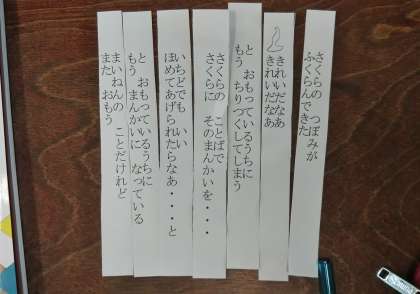 さくらの　つぼみが
ふくらんできた
きれいだなあ
きれいだなあ
と　おもっているうちに
もう　ちりつくしてしまう
さくらの　ことばで
さくらに　そのまんかいを・・・・
いちどでも　いい
ほめてあげられたらなあ・・・・と
と　おもっているうちに
もう　まんかいに　なっている
まいねんの　ことだけれど
また　おもう